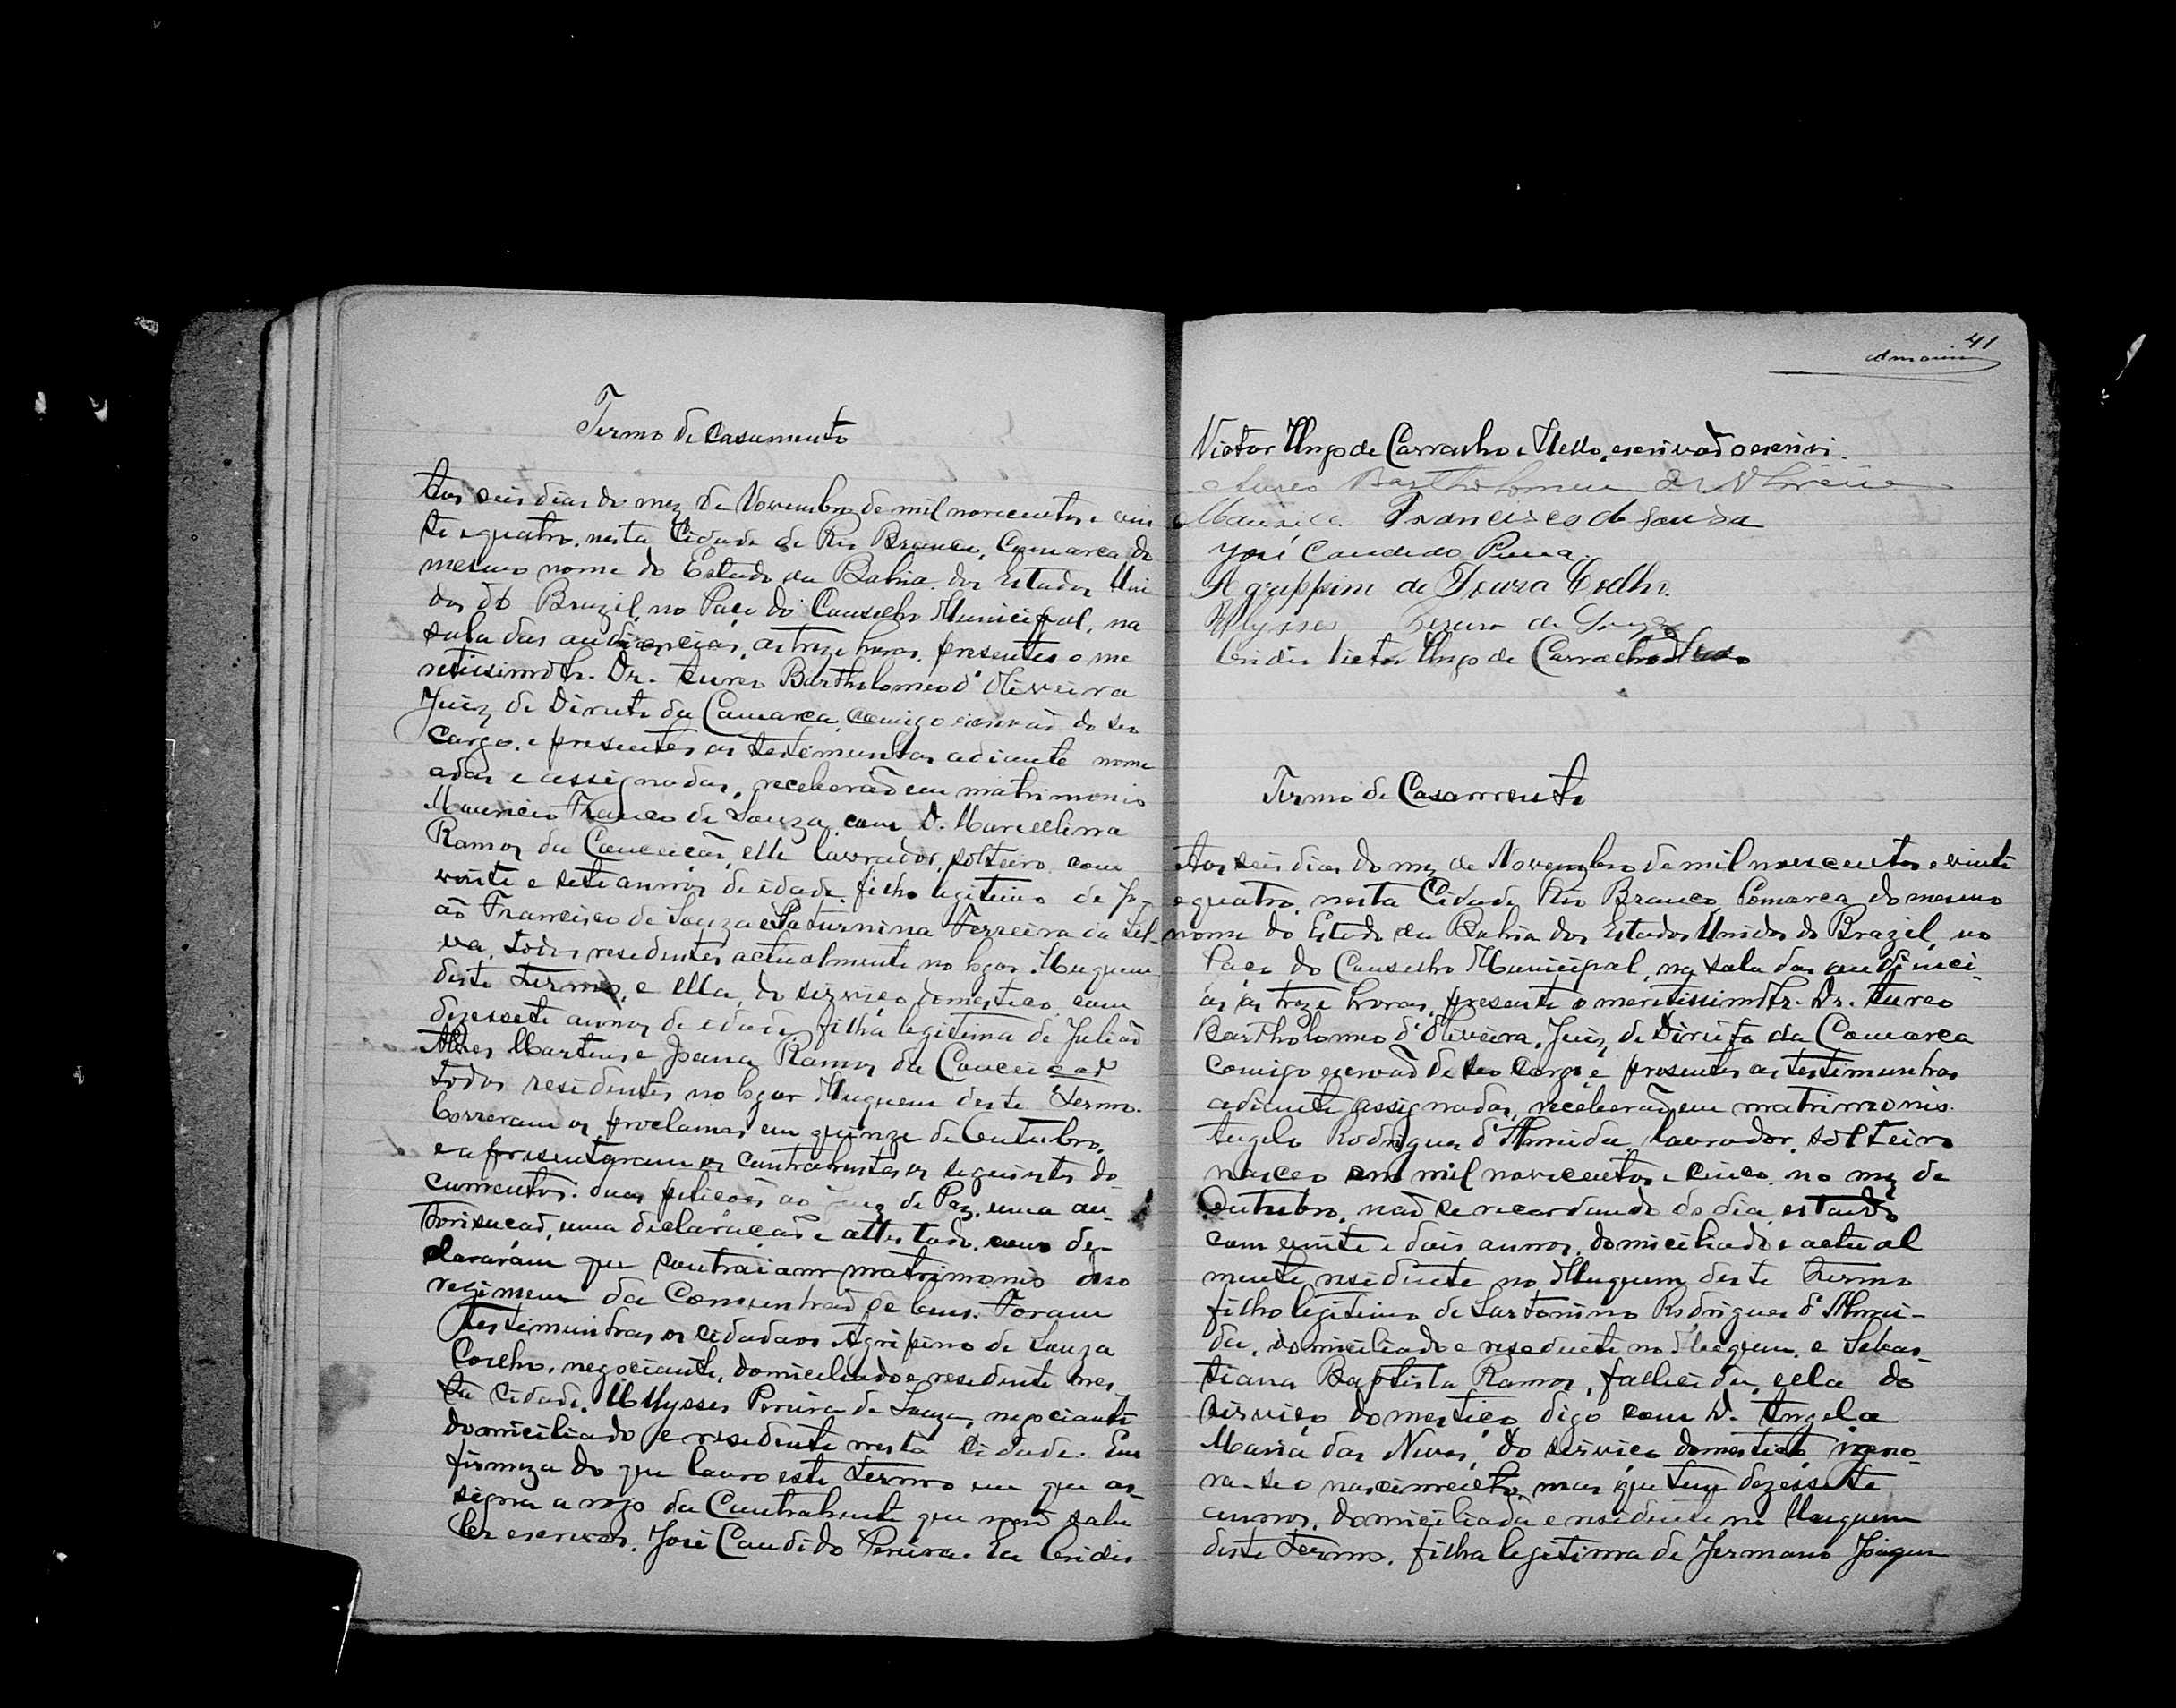 Termo de Casamento
Aos seis dias do mez de Novembro de mil novecentos e vin
te e quatro, nesta Cidade de Rio Branco, Comarca do
mesmo nome do Estado da Bahia dos Estados Uni
dos do Brazil, no Paço do Conselho Municipal, na
sala das audiencias, as treze horas, presentes o me
ritissimo Sr. Dr. Aureo Bartholomeo d'Oliveira
Juiz de Direito da Comarca, comigo escrivão do seu
cargo, e presentes as testemunhas adiante nome
adas e assignadas, receberão em matrimonio
Mauricio Franco de Souza, com D. Marcellina
Ramos da Conceicão, elle lavrador, solteiro, com
vinte e sete annos de idade, filho legitimo de Jo-
ão Francisco de Souza e Saturnina Ferreira da Sil-
va, todos residentes actualmente no logar Muquem
deste Termo, e ella, do serviço domestico com
dezessete annos de edade, filha legitima de Julião
Alves Martins e Joana Ramos da Conceicao
todos residentes no logar Muquem deste Termo.
Correram os proclamas em quinze de Outubro,
e apresentaram os contrahentes os seguintes do
cumentos: duas peticões ao Juiz de Paz, uma au-
thorisacaõ, uma declaracaõ e attestado, de-
clararam que contraiam matrimonio
regimem da Comunhaõ de bens. Foram
testimunhas os cidadaos Agripino de Souza
Coelho, negociante, domiciliado e residente nes-
ta Cidade, Ullysses Pereira de Souza, negociante
domiciliado e residente nesta Cidade. Em
firmeza do que lavro este termo em que as-
signa a rogo da Contrahente que naõ sabe
ler escrever, José Candido Pereira. Eu
41
Victor Hugo de Carvalho e Mello, escrivaõ o escrevi.
Aureo Bartholomeu de Oliveira
Mauricio Francisco de Souza
José Candido Pereira.
Agrippino de Souza Coelho.
Ulysses Pereira de Souza
Victor Hugo de Carvalho Mello
Termo de Casamento
Aos seis dias do mez de Novembro de mil novecentos e vinte
e quatro, nesta Cidade Rio Branco, Comarca do mesmo
nome do Estado da Bahia dos Estados Unidos do Brazil, no
Paço do Conselho Municipal, na sala das audienci-
as, as treze horas, presente o meritissimo Sr. Dr. Aureo
Bartholomeo d'Oliveira, Juiz de Direito da Comarca
comigo escrivaõ de seo cargo, e presentes as testimunhas
adiante assignadas, receberaõ em matrimonio.
Angelo Rodrigues d'Almeida, lavrador, solteiro
nasceo em mil novecentos e cinco, no mez de
Outubro, naõ se recordando do dia, estando
com vinte e dois annos, domiciliado e actual
mente residente no Muquem deste termo
filho legitimo de Rodrigues d'Almei-
da, domiciliado e residente no Muquem, e Sebas-
tiana Baptista Ramos, fallecida, ella do
serviço domestico, digo com D. Angela
Maria das Neves, do serviço domestico, igno-
ra-se o nascimento, mas que tem dezessete
annos, domiciliada e residente no Muquem
deste Termo, filha legitima de Jermano